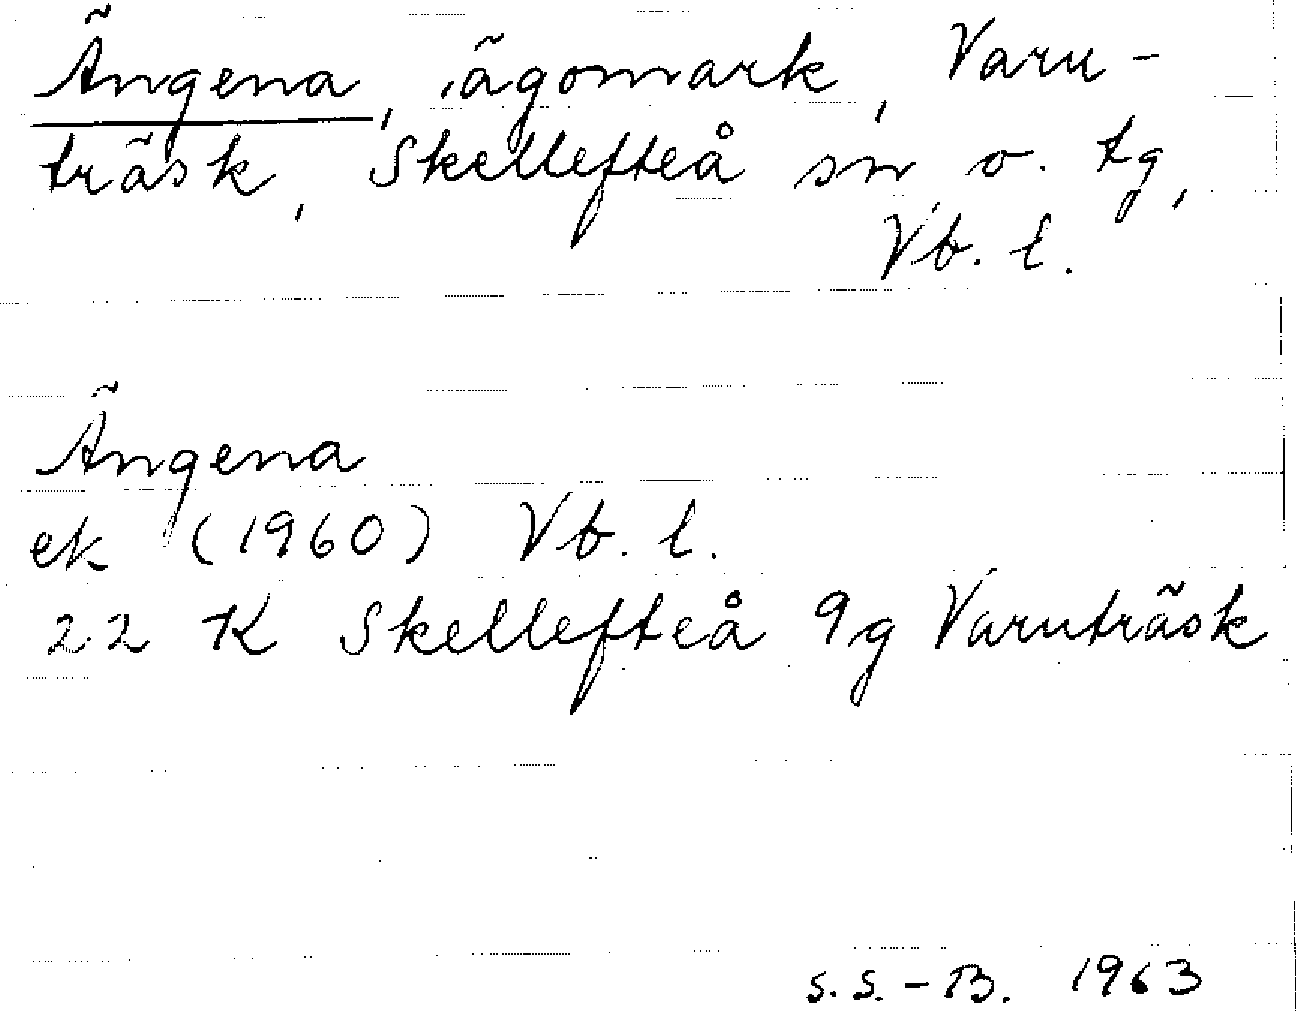 Ängena, ägomark, Varu-
träsk, Skellefteå sn o. tg,
Vb. l.
Ängena
ek (1960) Vb. l.
22 K Skellefteå 9g Varuträsk
S.S.-B. 1963